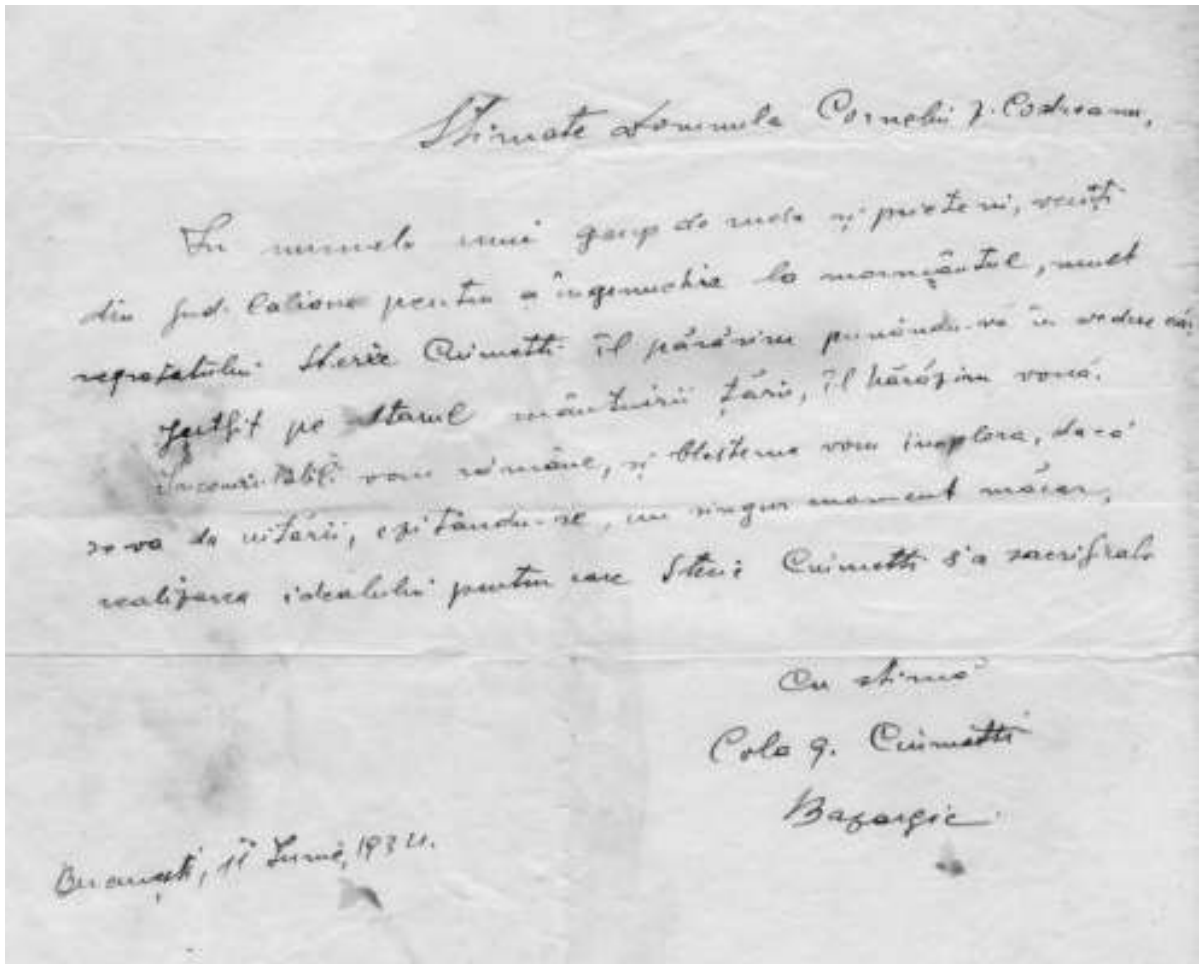 Stimate Domnule Corneliu Z. Codreanu,
In numele unui grup de rude și prieteni, veniți
din jud. Caliacra pentru a îngenuchia la mormântul, mult
regretatului Sterie Ciumetti îl părăsim punându-vă în vedere că,
Jertfit pe Altarul mântuirii țării, îl hărăzim vouă.
vom rămâne, și blesteme vom implora, dacă
se va da uitării, ezitându-se, un singur moment măcar,
realizarea idealului pentru care Sterie Ciumetti s'a sacrificat.
Cu stimă
Cola G. Ciumetti
Bazargic
București, 11 Iunie, 1934.